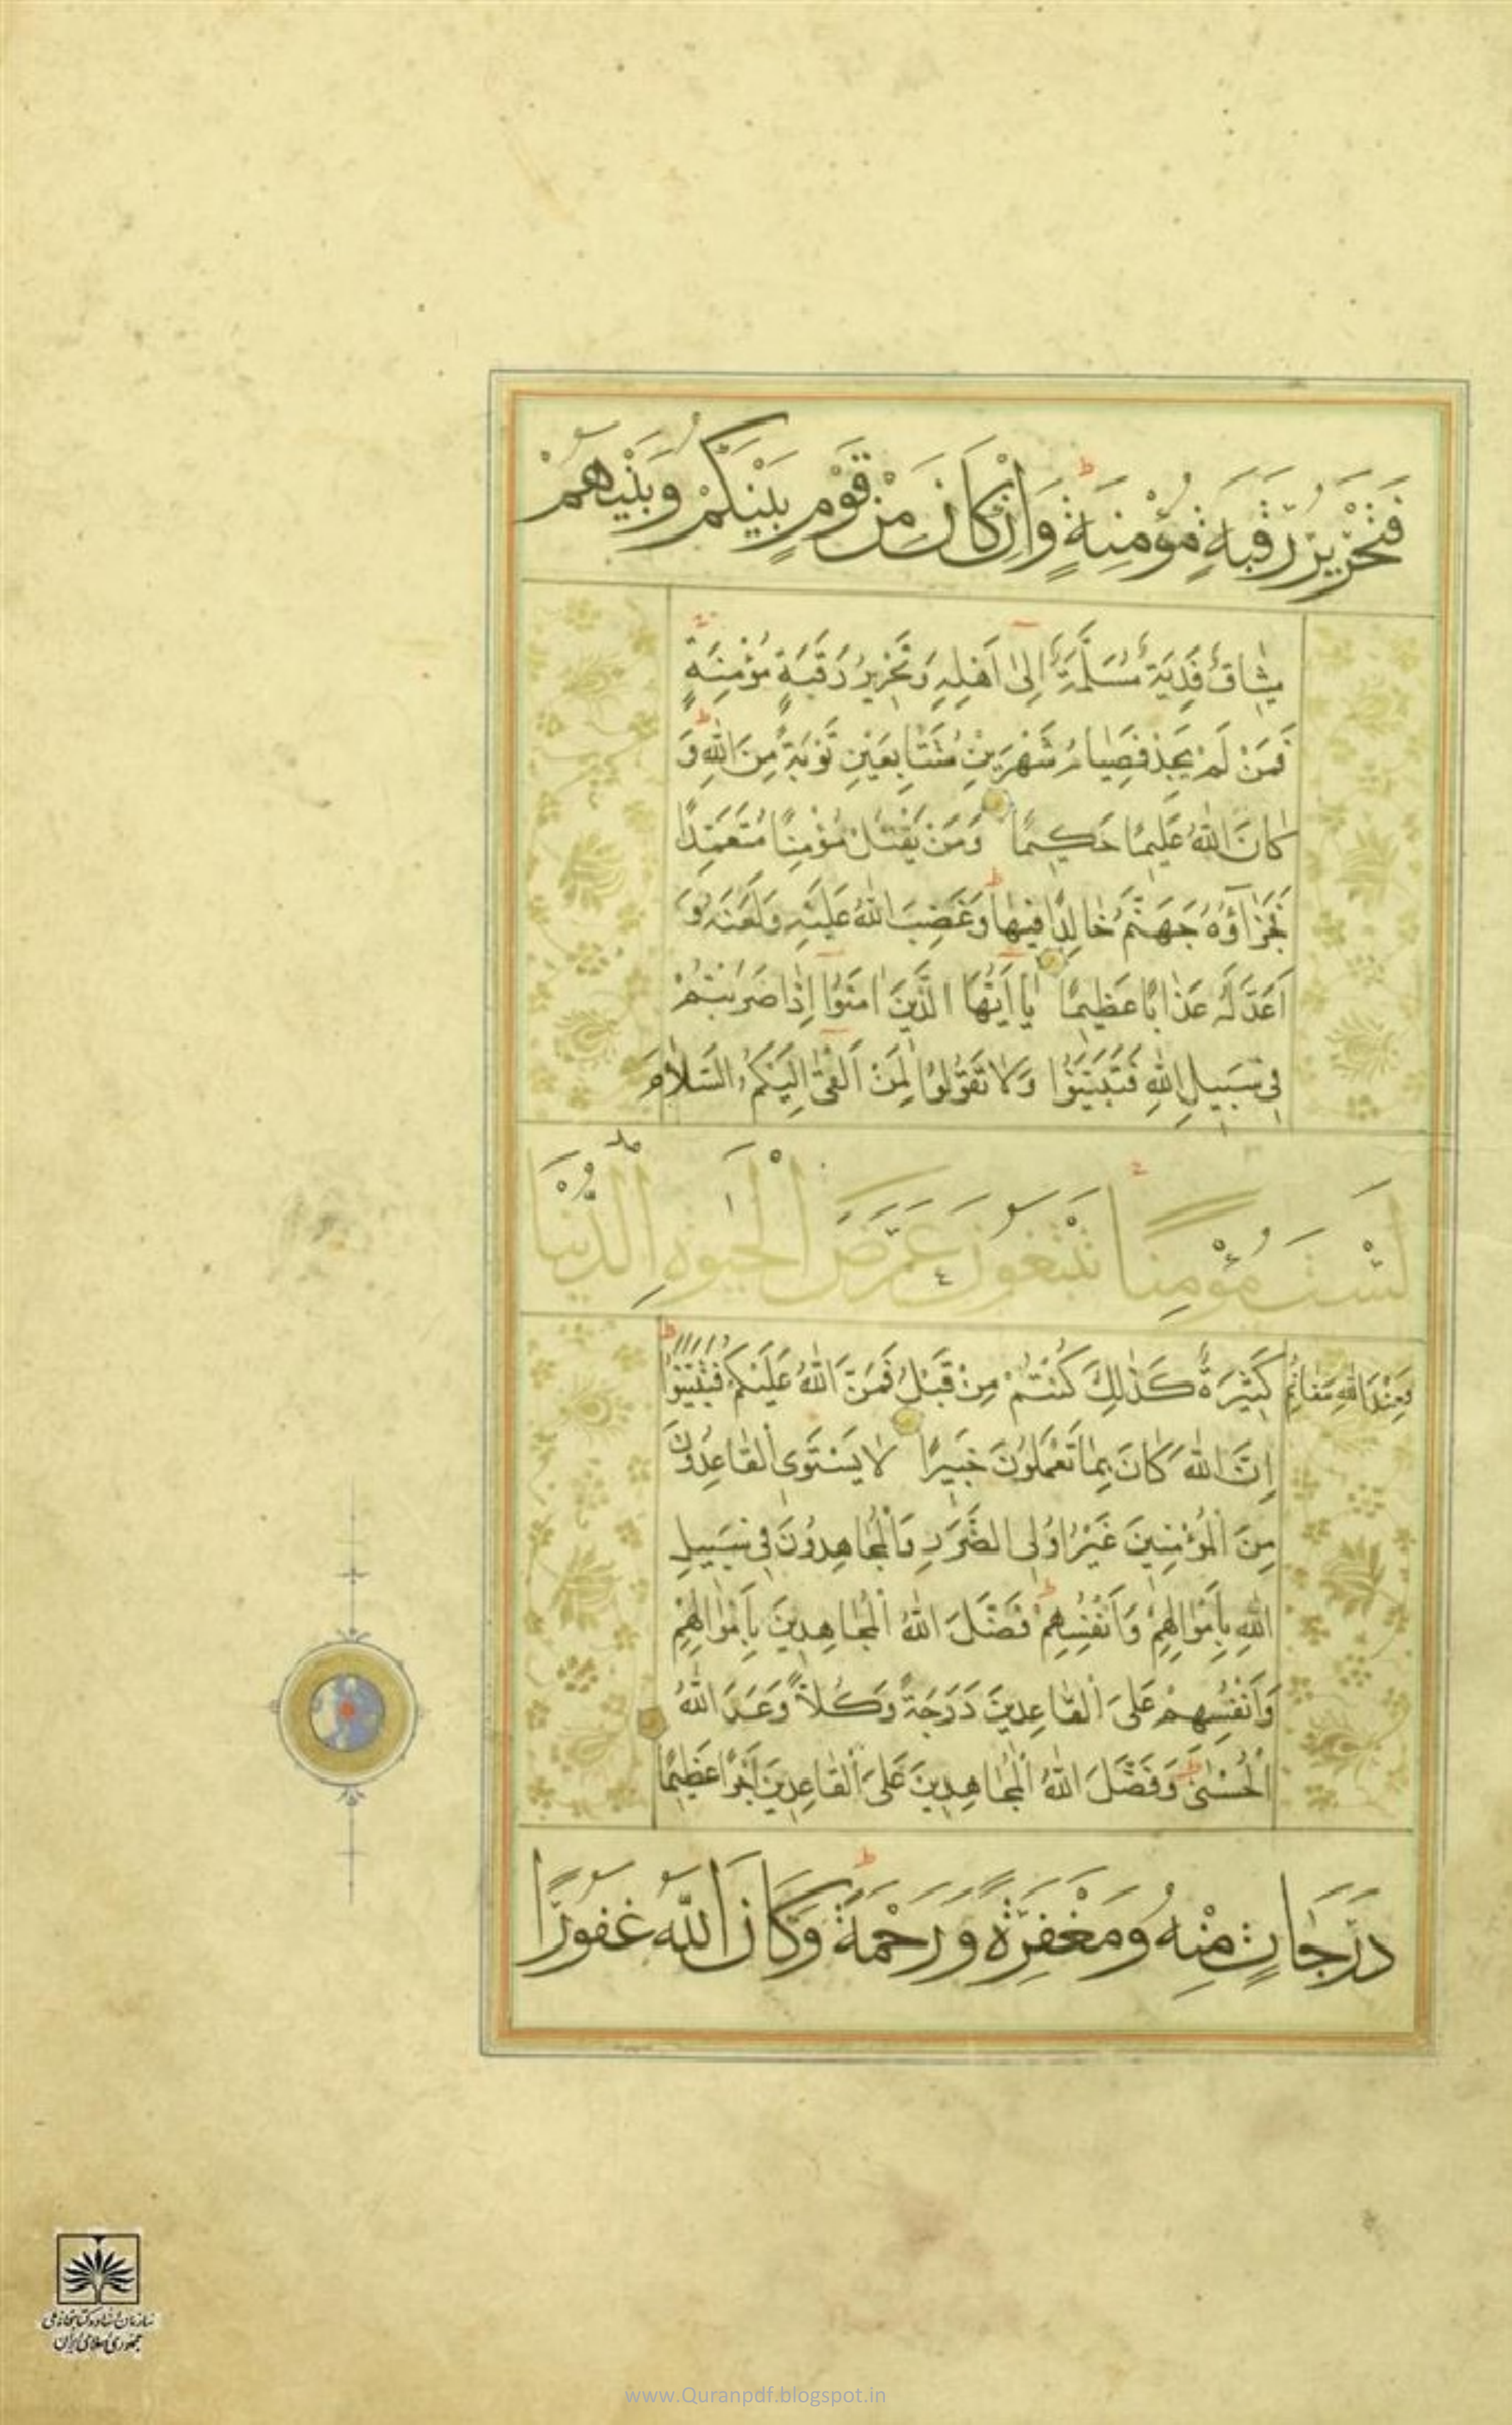 فَتَحْرِيرُ رَقَبَةٍ مُؤْمِنَةٍ وَاِنْ كَانَ مِنْ قَوْمٍ بَيْنَكُمْ وَبَيْنَهُمْ
مِيثَاقٌ فَدِيَةٌ مُسَلَّمَةٌ اِلٰى اَهْلِهِ وَتَحْرِيرُ رَقَبَةٍ مُؤْمِنَةٍ
فَمَنْ لَمْ يَجِدْ فَصِيَامُ شَهْرَيْنِ مُتَتَابِعَيْنِ تَوْبَةً مِنَ اللهِ وَ
كَانَ اللهُ عَلِيمًا حَكِيمًا وَمَنْ يَقْتُلْ مُؤْمِنًا مُتَعَمِّدًا
فَجَزَآؤُهُ جَهَنَّمُ خَالِدًا فِيهَا وَغَضِبَ اللهُ عَلَيْهِ وَلَعَنَهُ وَ
اَعَدَّ لَهُ عَذَابًا عَظِيمًا يَا اَيُّهَا الَّذِينَ اٰمَنُوا اِذَا ضَرَبْتُمْ
فِي سَبِيلِ اللهِ فَتَبَيَّنُوا وَلَا تَقُولُوا لِمَنْ اَلْقٰى اِلَيْكُمُ السَّلَامَ
لَسْتَ مُؤْمِنًا تَبْتَغُونَ عَرَضَ الْحَيٰوةِ الدُّنْيَا
فَعِنْدَ اللهِ مَغَانِمُ كَثِيرَةٌ كَذٰلِكَ كُنْتُمْ مِنْ قَبْلُ فَمَنَّ اللهُ عَلَيْكُمْ فَتَبَيَّنُوا
اِنَّ اللهَ كَانَ بِمَا تَعْمَلُونَ خَبِيرًا لَا يَسْتَوِى الْقَاعِدُونَ
مِنَ الْمُؤْمِنِينَ غَيْرُ اُولِى الضَّرَرِ وَالْمُجَاهِدُونَ فِي سَبِيلِ
اللهِ بِاَمْوَالِهِمْ وَاَنْفُسِهِمْ فَضَّلَ اللهُ الْمُجَاهِدِينَ بِاَمْوَالِهِمْ
وَاَنْفُسِهِمْ عَلَى الْقَاعِدِينَ دَرَجَةً وَكُلًّا وَعَدَ اللهُ
الْحُسْنٰى وَفَضَّلَ اللهُ الْمُجَاهِدِينَ عَلَى الْقَاعِدِينَ اَجْرًا عَظِيمًا
دَرَجَاتٍ مِنْهُ وَمَغْفِرَةً وَرَحْمَةً وَكَانَ اللهُ غَفُورًا
سازمان اسناد و کتابخانه ملی
جمهوری اسلامی ایران
www.Quranpdf.blogspot.in